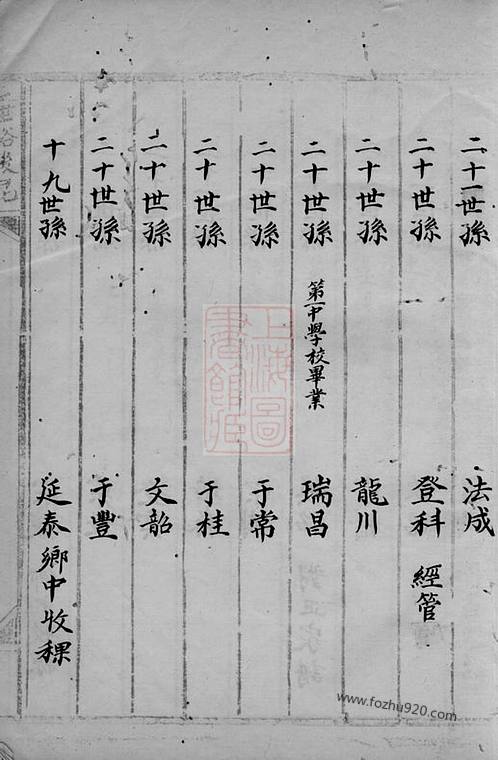 二十一世孫 法成
二十世孫 登科 經管
二十世孫 龍川
二十世孫 第一中學校畢業 瑞昌
二十世孫 于常
二十世孫 于桂
二十世孫 文韶
二十世孫 于豐
十九世孫 延泰鄉中收稞
上海圖書館藏
www.fozhu920.com